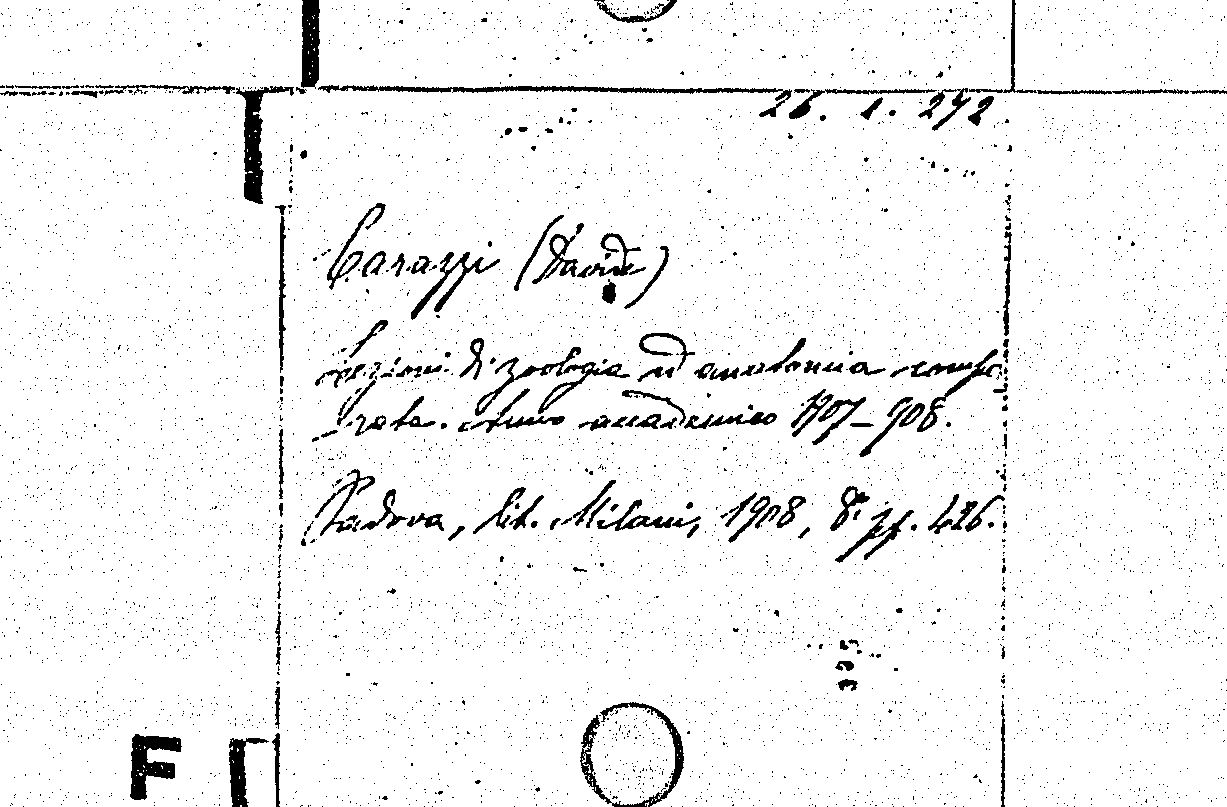 26. 1. 272
Carazzi (Davide)
Lezioni di zoologia ed anatomia compa-
rata. Anno accademico 1907-908.
Padova, lit. Milani, 1908, 8°. pp. 426.
F